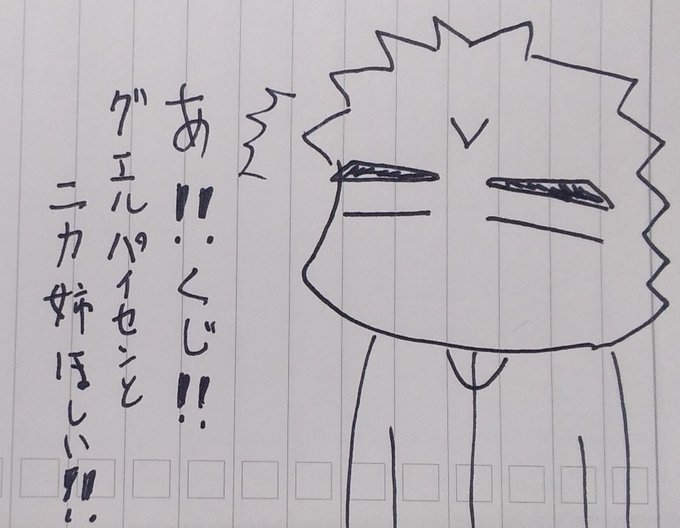 あ!!くじ!!
グエルパイセンと
ニカ姉ほしい!!